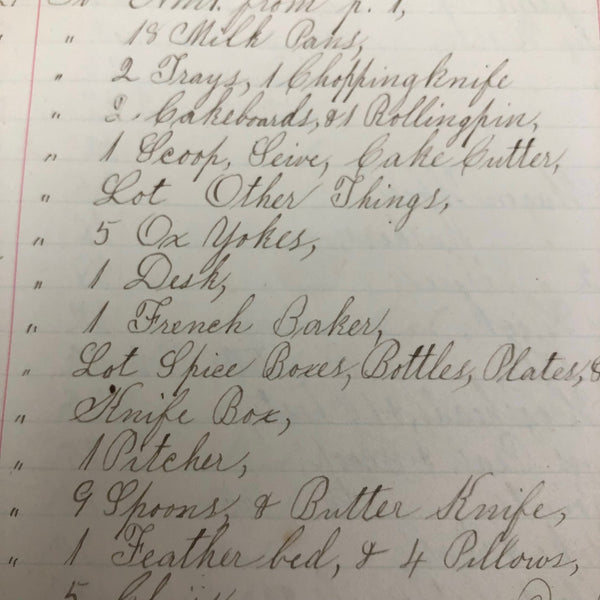 To Amt. from p. 1,
" 18 Milk Pans,
" 2 Trays, 1 Choppingknife
" 2. Cakeboards, & 1 Rollingpin,
" 1 Scoop, Seive, Cake Cutter,
" Lot Other Things,
" 5 Ox Yokes,
" 1 Desk,
" 1 French Baker,
" Lot Spice Boxes, Bottles, Plates, &
" Knife Box,
" 1 Pitcher,
" 9 Spoons, & Butter Knife,
" 1 Feather bed, & 4 Pillows,
5